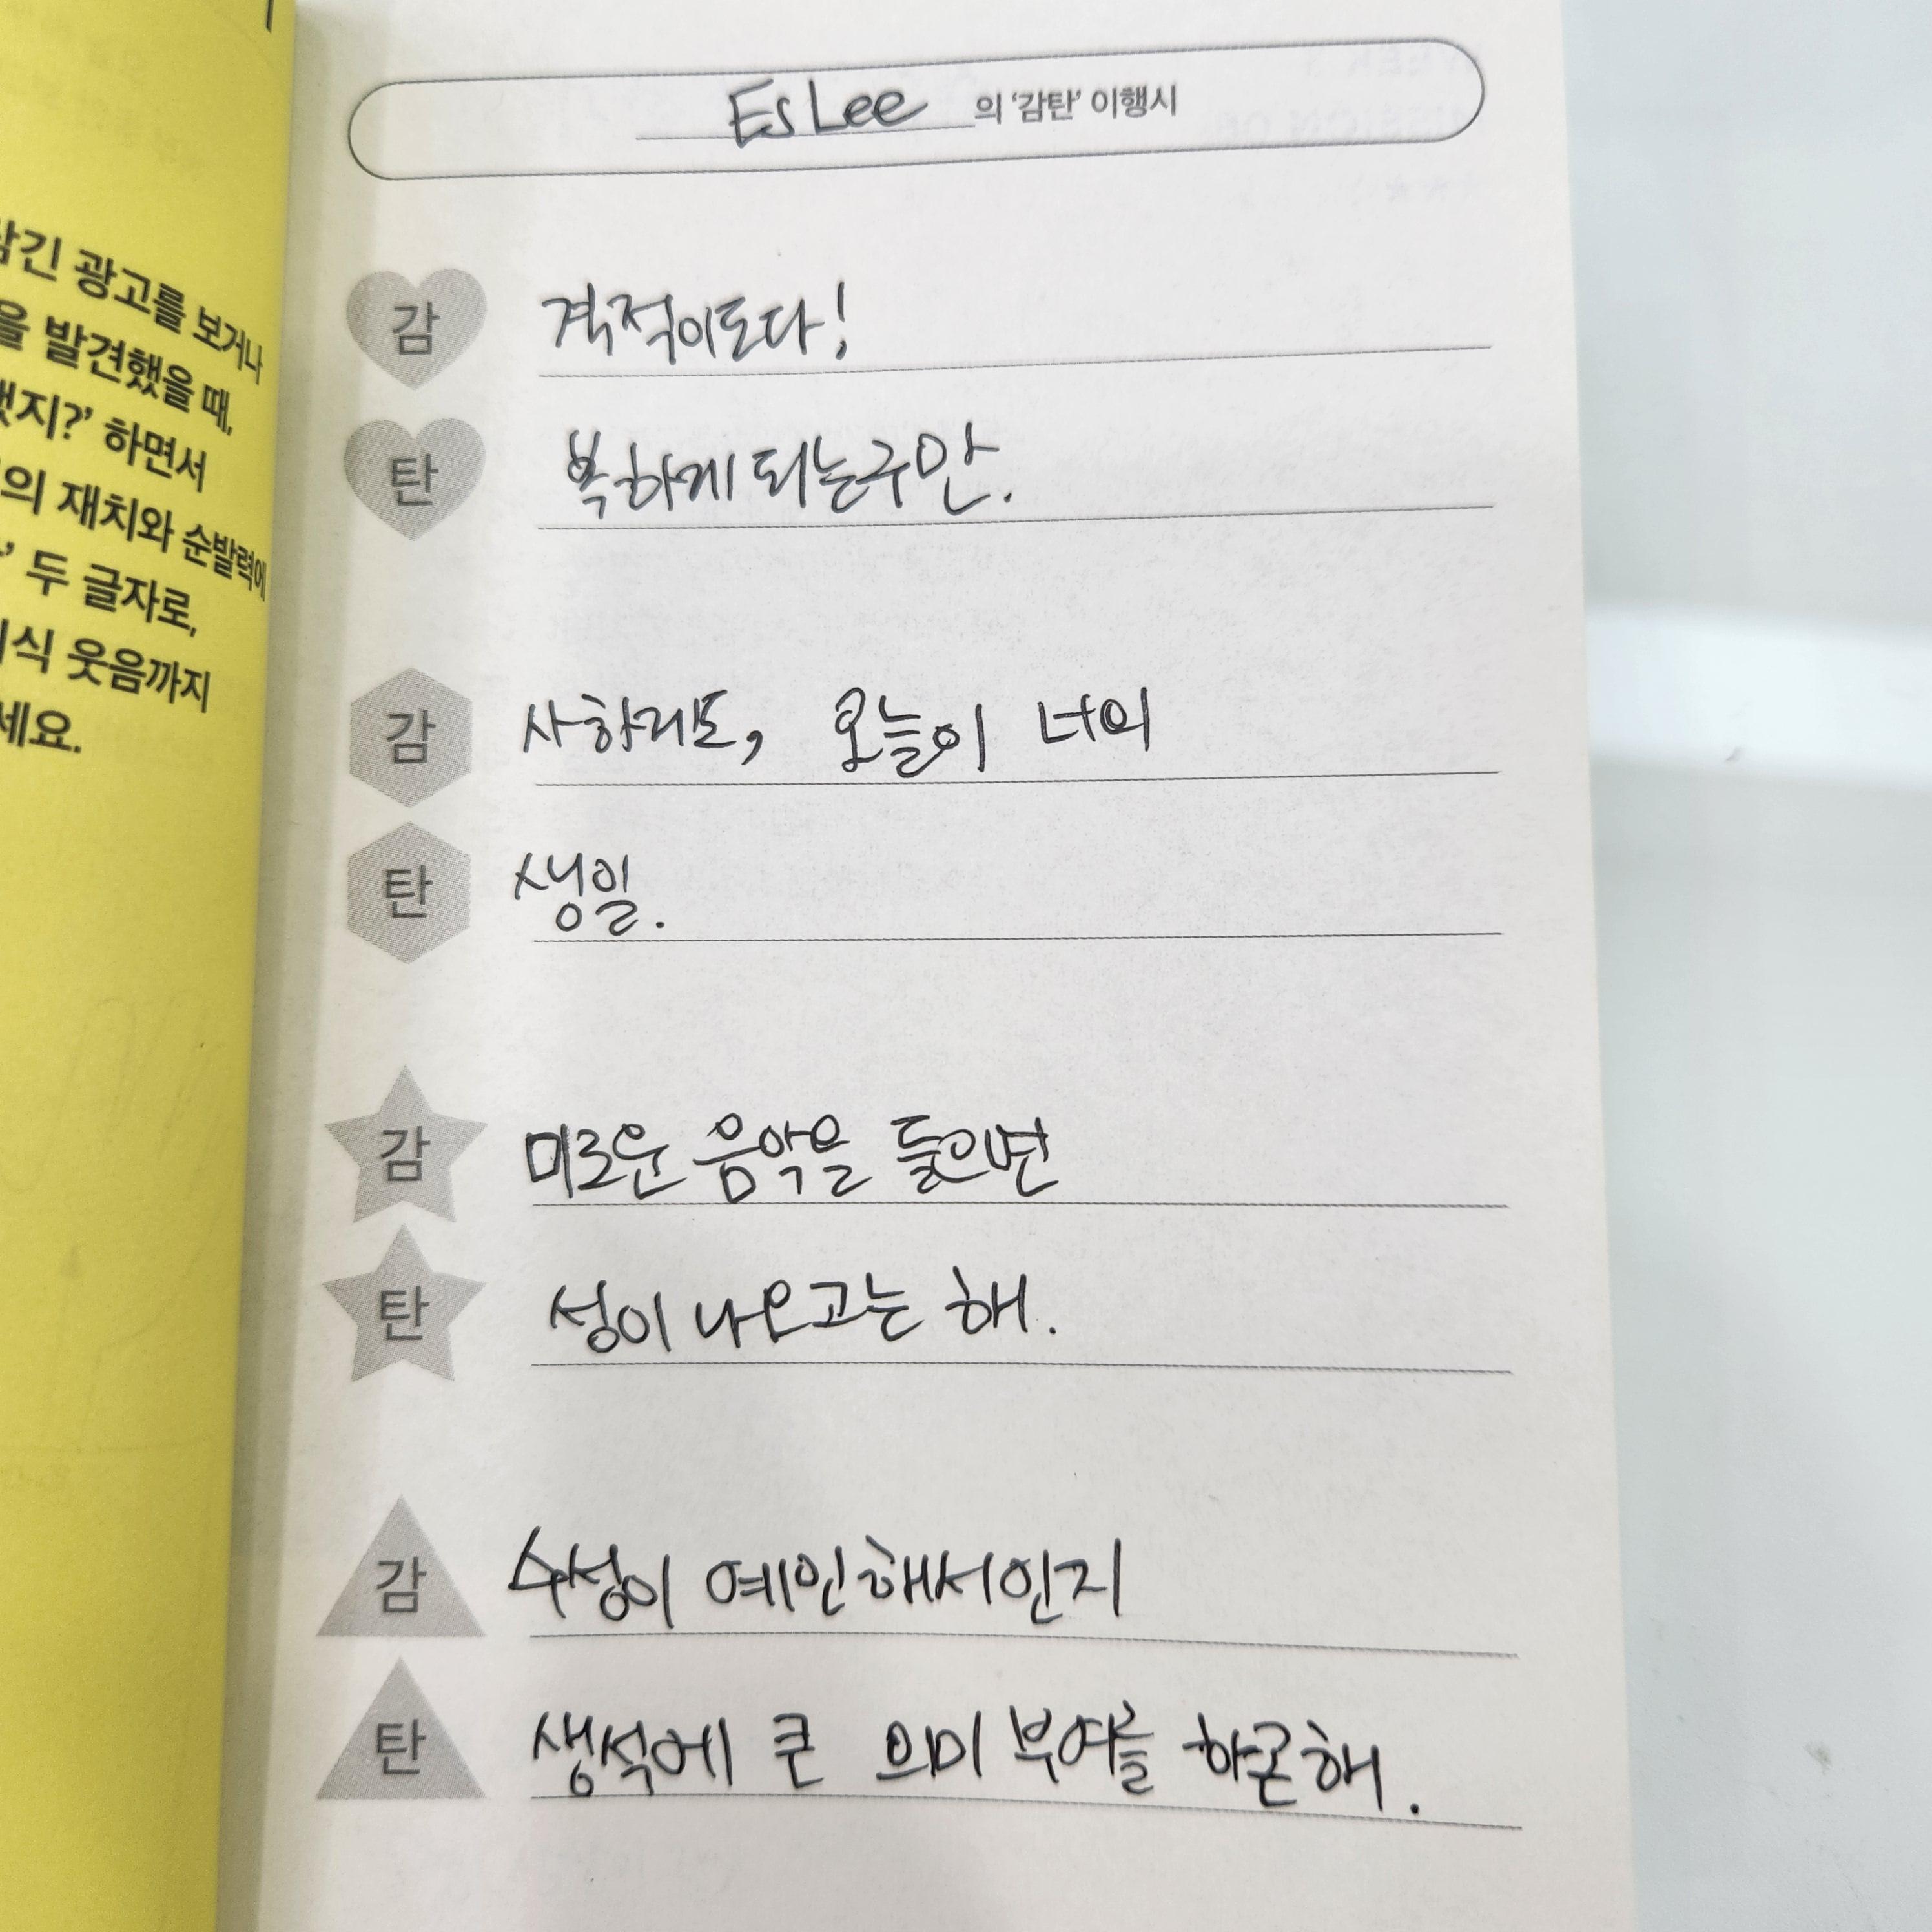 삼긴 광고를 보거나
을 발견했을 때,
했지?' 하면서
의 재치와 순발력에
' 두 글자로,
식 웃음까지
세요.
Es Lee 의 '감탄' 이행시
감 격적이도다!
탄 복하게 되는구만.
감 사하리도, 오늘이 너의
탄 생일.
감 미로운 음악을 들으면
탄 성이 나오고는 해.
감 수성이 예민해서인지
탄 생석에 큰 의미 부여를 하곤해.